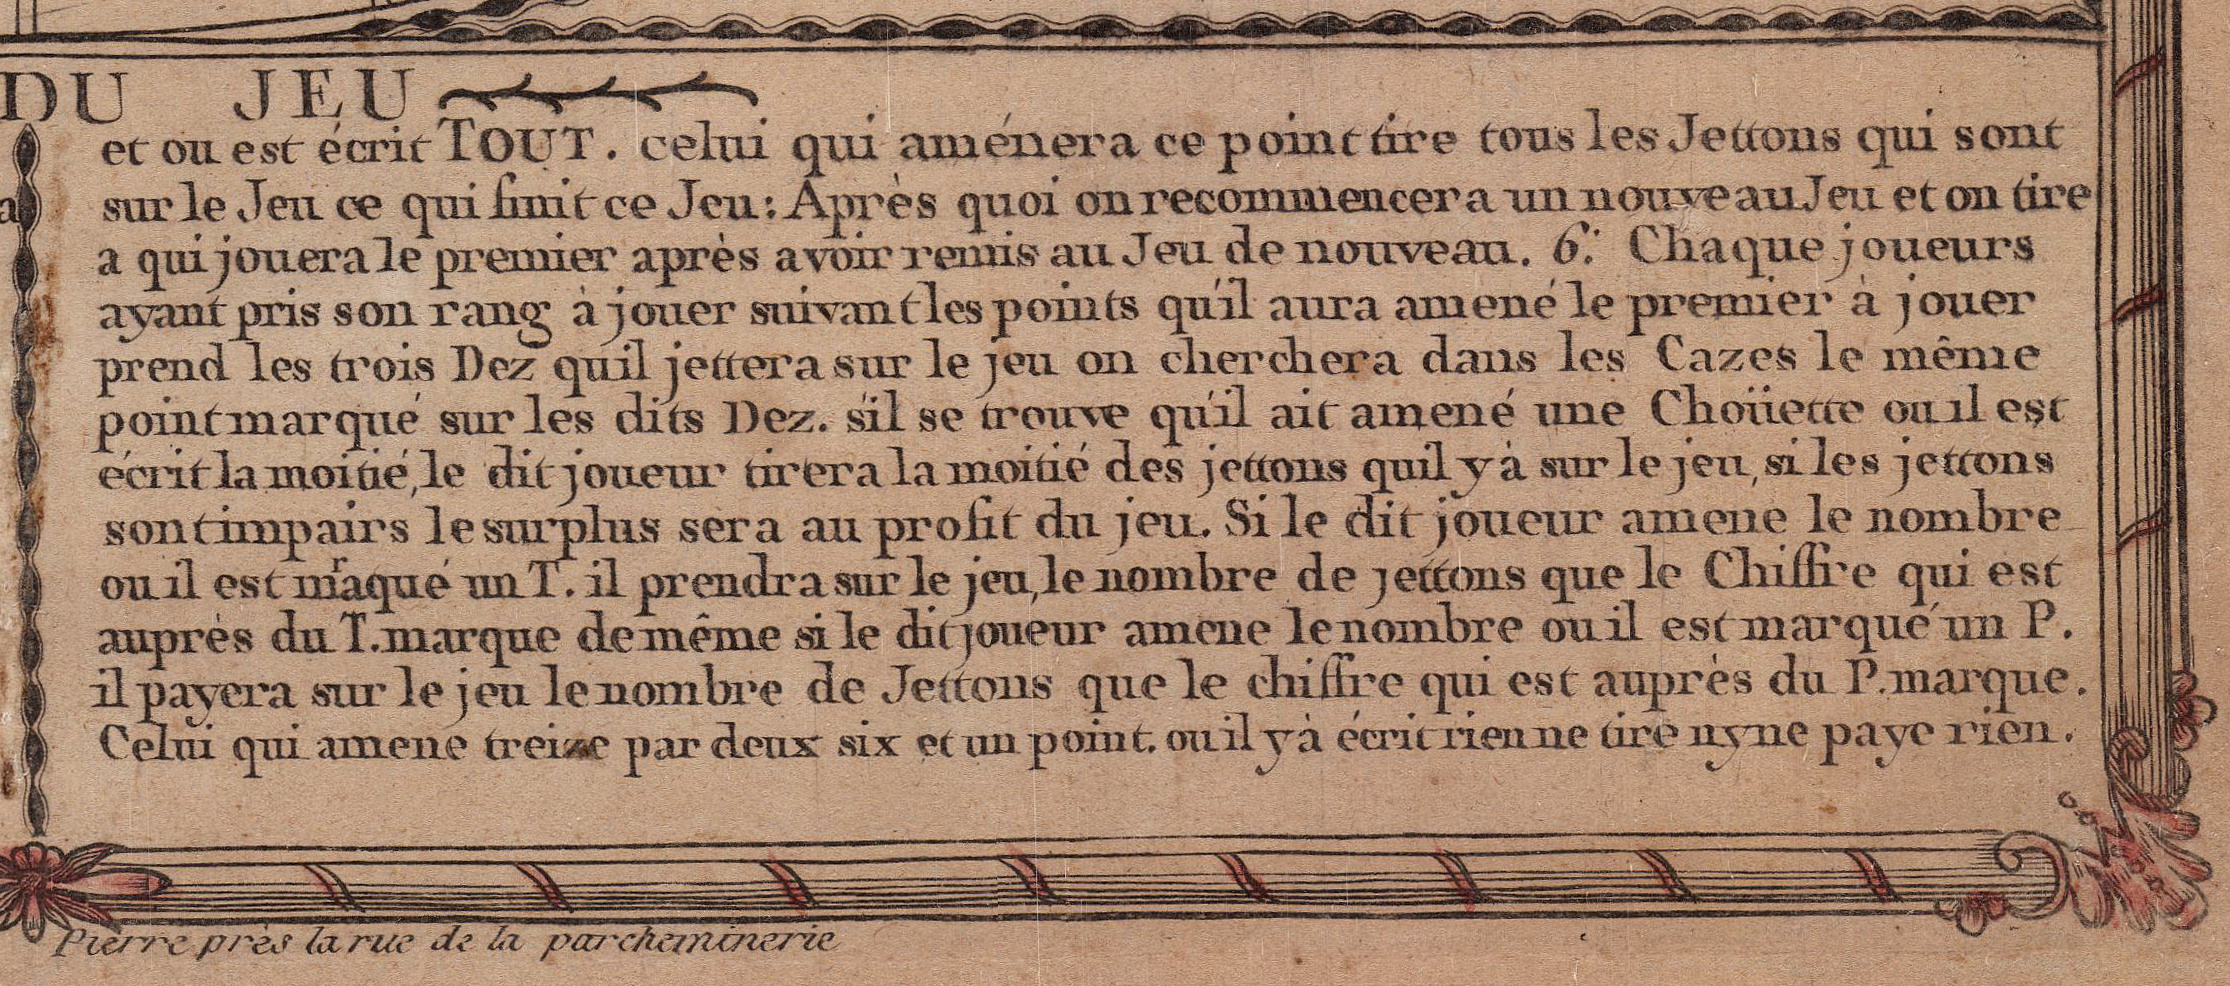 DU JEU
et ou est écrit TOUT. celui qui aménera ce point tire tous les Jettons qui sont
sur le Jeu ce qui finit ce Jeu: Après quoi on recommencera un nouveau Jeu et on tire
a qui jouera le premier après avoir remis au Jeu de nouveau. 6.° Chaque joueurs
ayant pris son rang à jouer suivant les points qu'il aura amené le premier à jouer
prend les trois Dez quil jettera sur le jeu on cherchera dans les Cazes le même
point marqué sur les dits Dez. s'il se trouve qu'il ait amené une Choüette ou il est
écrit la moitié, le dit joueur tirera la moitié des jettons quil y à sur le jeu, si les jettons
sont impairs le surplus sera au profit du jeu. Si le dit joueur amene le nombre
ou il est mraqué un T. il prendra sur le jeu, le nombre de jettons que le Chiffre qui est
auprès du T. marque de même si le dit joueur amene le nombre ou il est marqué un P.
il payera sur le jeu le nombre de Jettons que le chiffre qui est auprès du P. marque.
Celui qui amene treize par deux six et un point. ou il y à écrit rien ne tire ny ne paye rien.
Pierre près la rue de la parcheminerie